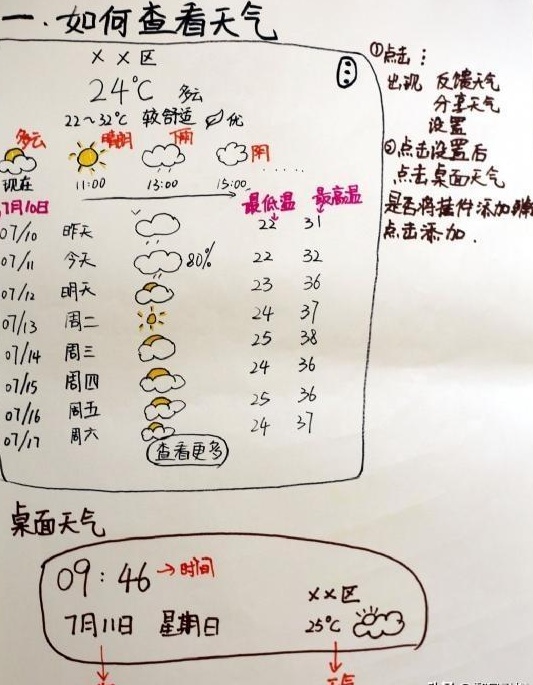 一.如何查看天气
××区
24℃ 多云
22~32℃ 较舒适 优
多云 晴朗 雨 阴
现在 11:00 13:00 15:00
最低温 最高温
7月10日
07/10 昨天 22 31
07/11 今天 80% 22 32
07/12 明天 23 36
07/13 周二 24 37
07/14 周三 25 38
07/15 周四 24 36
07/16 周五 25 36
07/17 周六 24 37
查看更多
①点击:
出现 反馈天气
分享天气
设置
②点击设置后
点击桌面天气
是否将挂件添加
点击添加.
桌面天气
09:46→时间
××区
7月11日 星期日 25℃